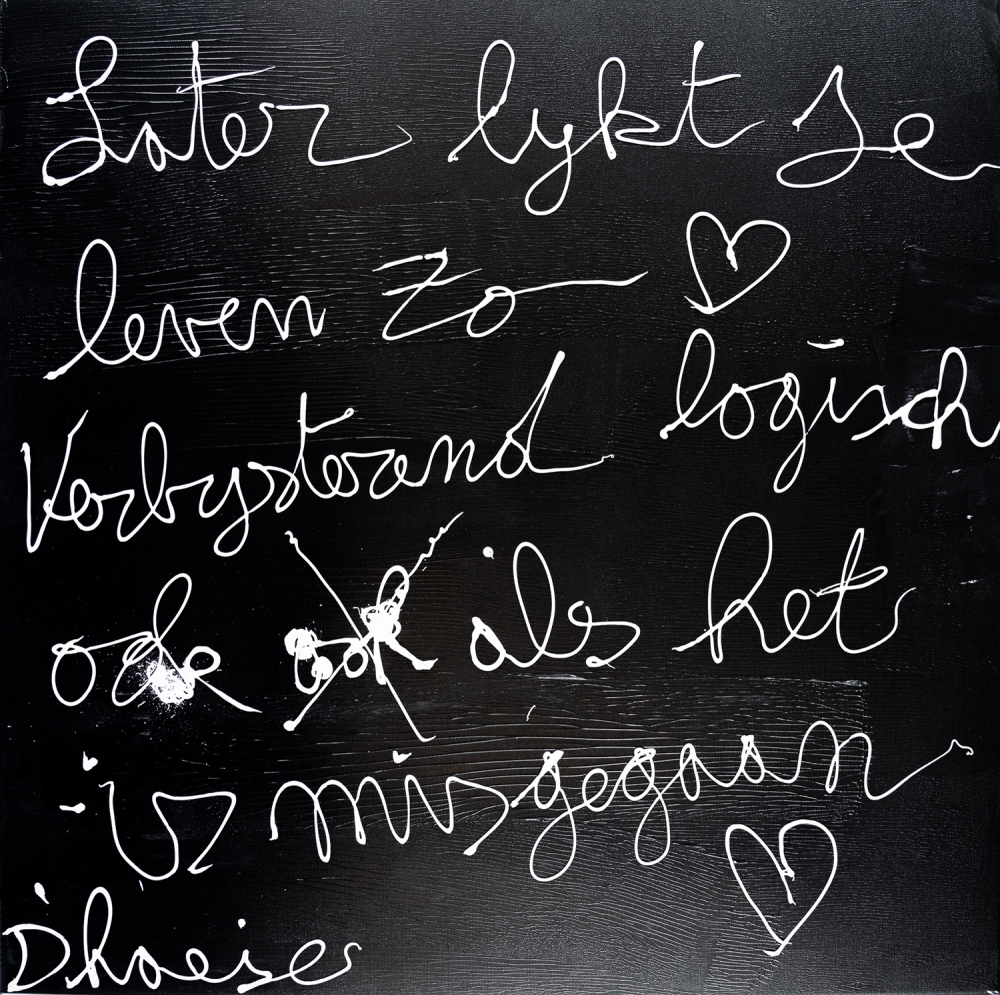 Later lykt Je
leven zo
Verbysterend logisch
ook ook als het
is misgegaan
D'haeise